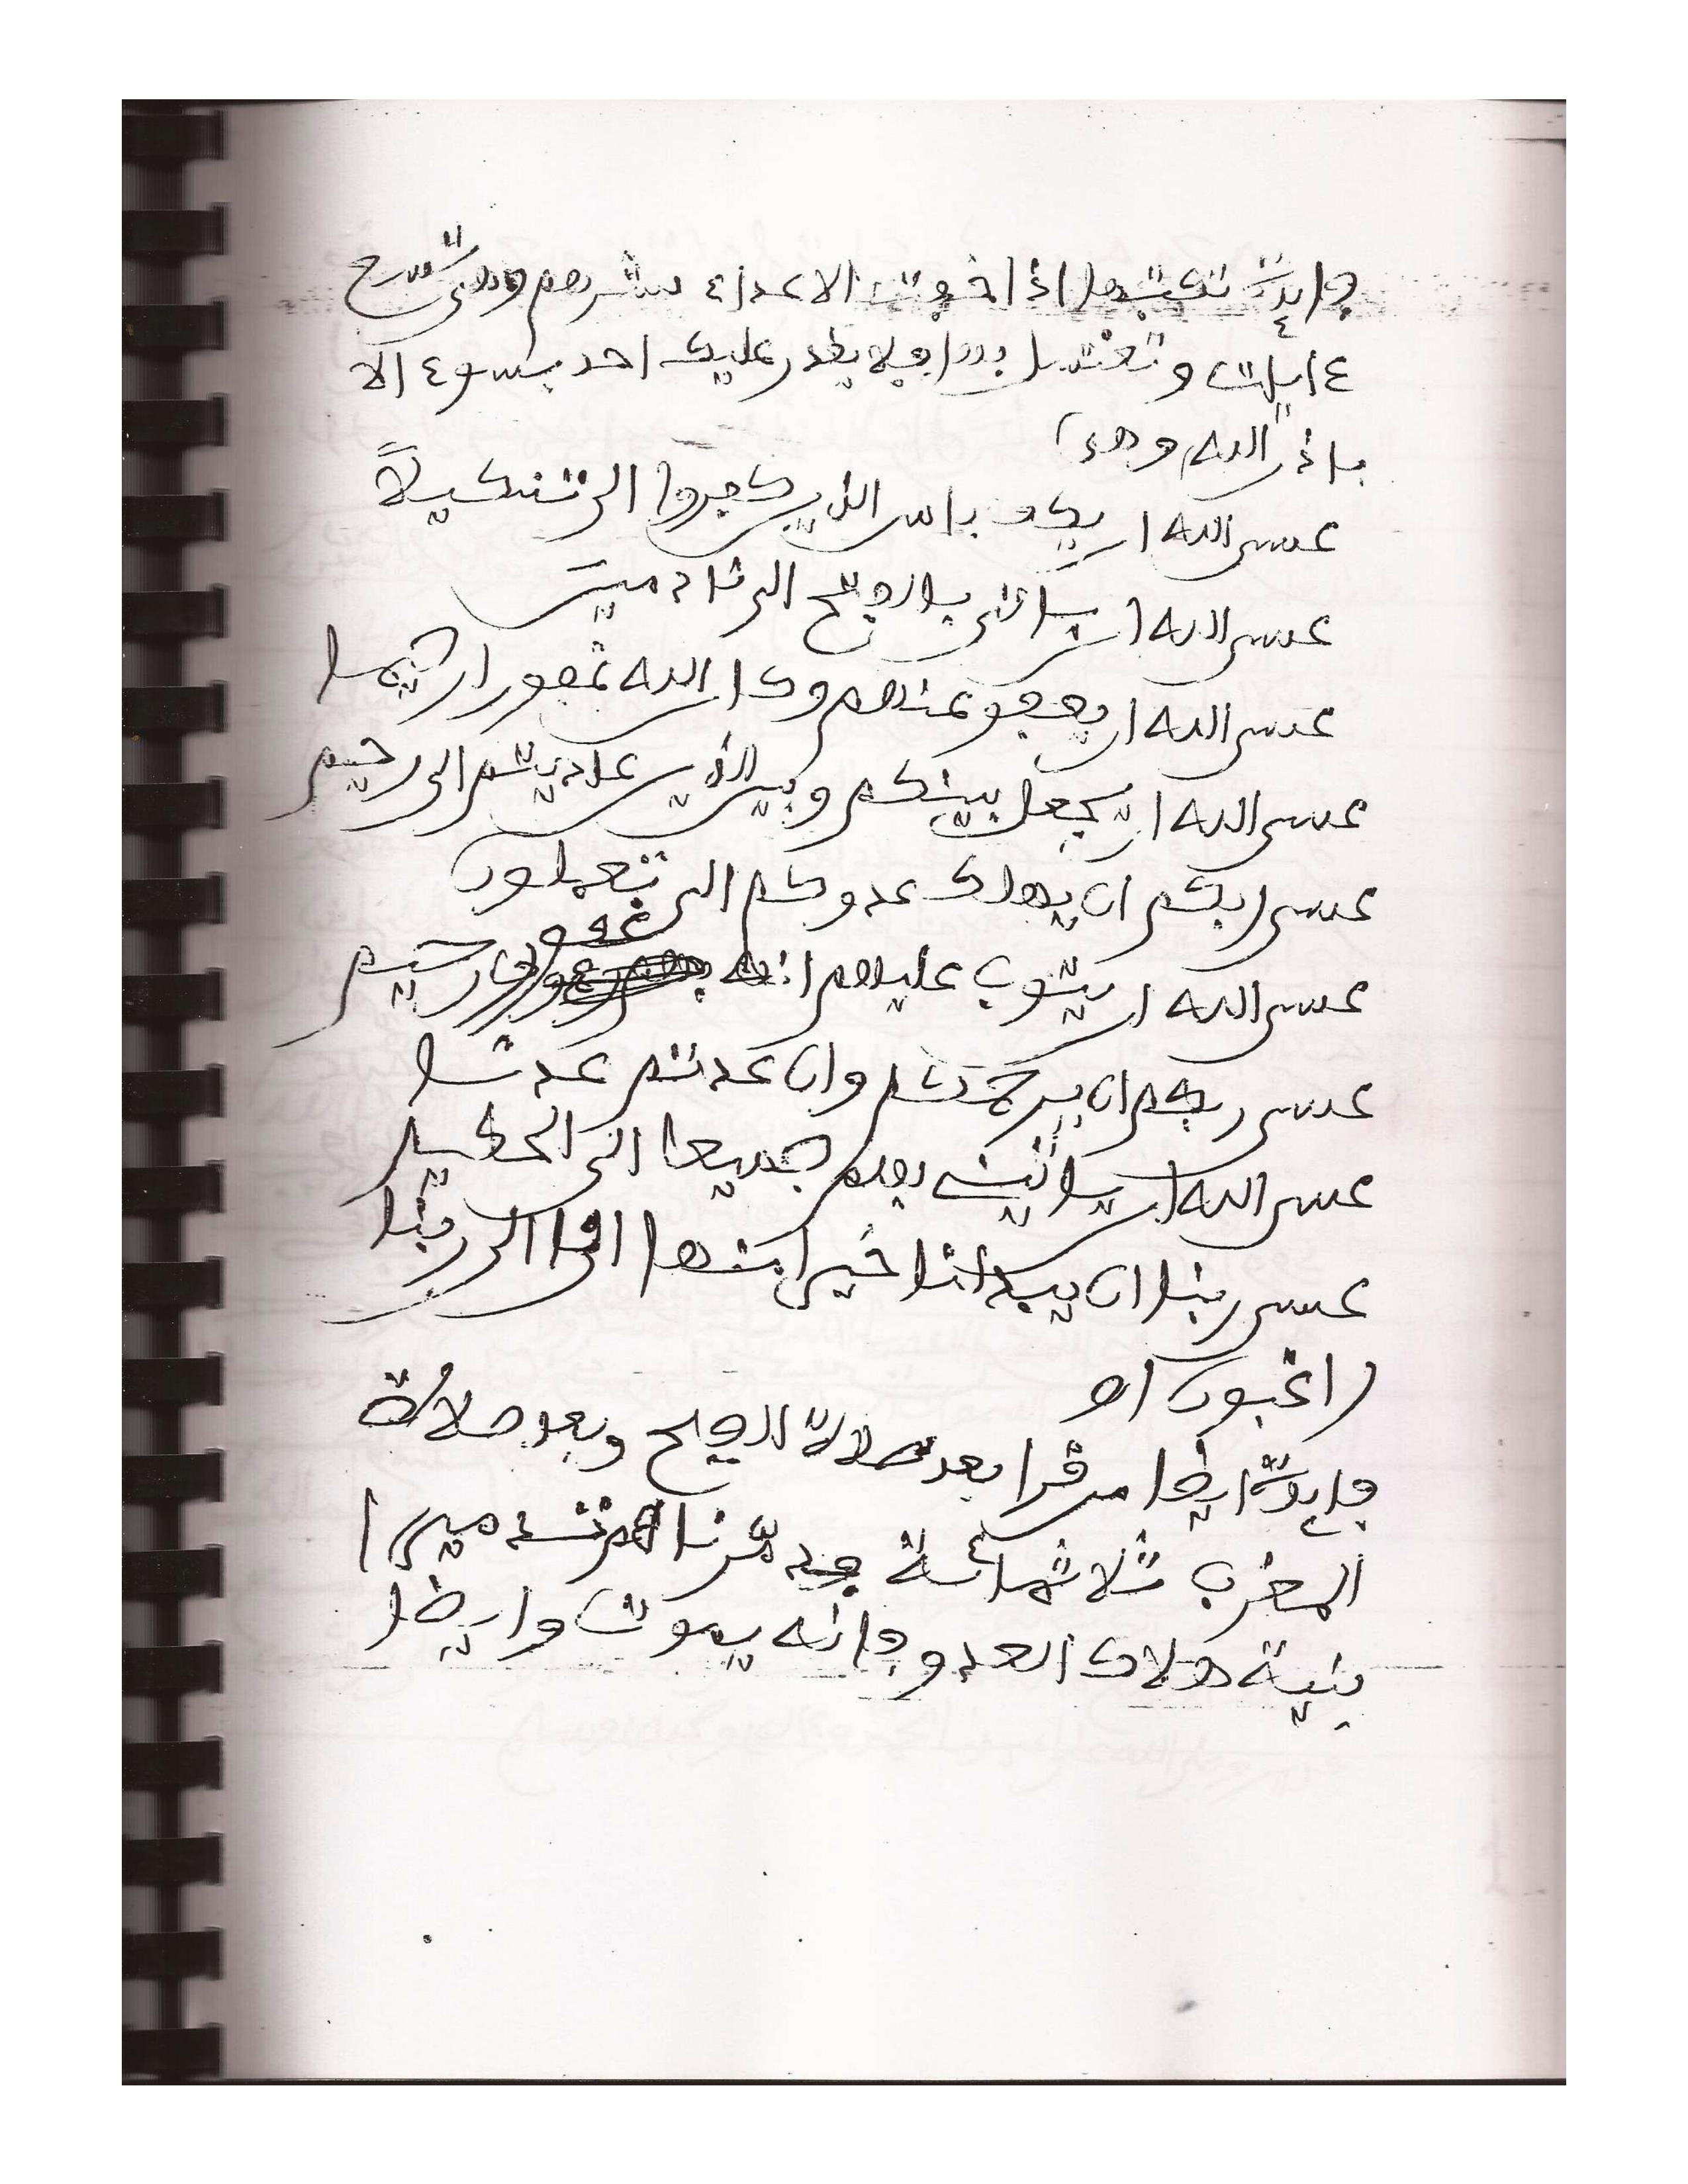 فايدة تكتبها اذا خوفت الاعداء بشرهم وهي تسع
ءايات وتغتسل بها فلا يقدر عليك احد بسوء الا
باذن الله وهي
عسى الله ان يكف باس الذين كفروا الى تنكيلا
عسى الله ان ياتي بالفتح الى نادمين
عسى الله ان يعفو عنهم وكان الله غفورا رحيما
عسى الله ان يجعل بينكم وبين الذين عاديتم الى رحيم
عسى ربكم ان يهلك عدوكم الى تعملون
عسى الله ان يتوب عليهم ان الله غفور رحيم
عسى ربكم ان يرحمكم وان عدتم عدنا
عسى الله ان ياتيني بهم جميعا الى الحكيم
عسى ربنا ان يبدلنا خيرا منها انا الى ربنا
راغبون اه
فايدة ايضا من قرا بعد صلاة الصبح وبعد صلاة
المغرب ثلاثمائة فدمرناهم تدميرا
بنية هلاك العدو فانه يموت وايضا